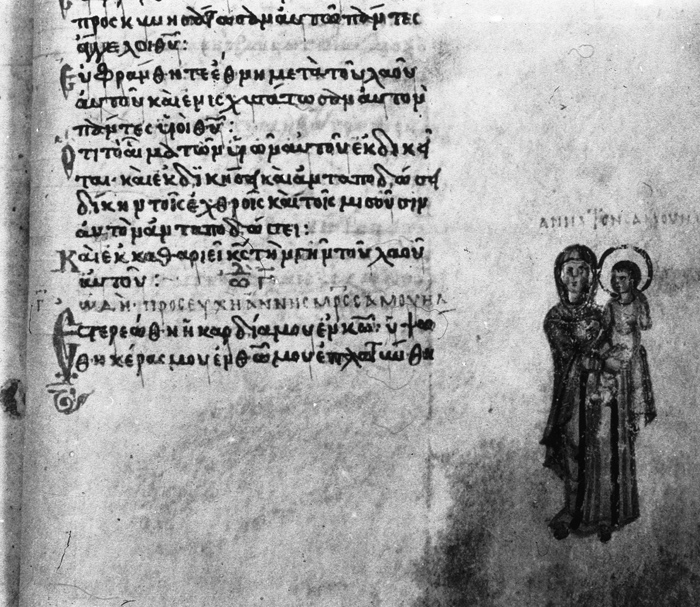 προσκυνησάτωσαν αὐτῶ πάντες
ἄγγελοι θῦ:
Εὐφράνθητε ἔθνη μετὰ τοῦ λαοῦ
αὐτοῦ καὶ ἐνισχυσάτωσαν αὐτὸν
πάντες υἱοὶ θῦ:
Ὅτι τὸ αἷμα τῶν υἱῶν αὐτοῦ ἐκδικεῖ
ται· καὶ ἐκδικήσει καὶ ἀνταποδώσει
δίκην τοῖς ἐχθροῖς καὶ τοῖς μισοῦσιν
αὐτὸν ἀνταποδώσει:
Καὶ ἐκκαθαριεῖ κς τὴν γῆν τοῦ λαοῦ
αὐτοῦ:
ΩΔΗ· ΠΡΟΣΕΥΧΗ ΑΝΝΗΣ ΜΡΣ ΣΑΜΟΥΗΛ
Ἐστερεώθη ἡ καρδία μου ἐν κῶ· ὑψώ
θη κέρας μου ἐν θῶ μου ἐπλατύνθη
ΑΝΝΑ